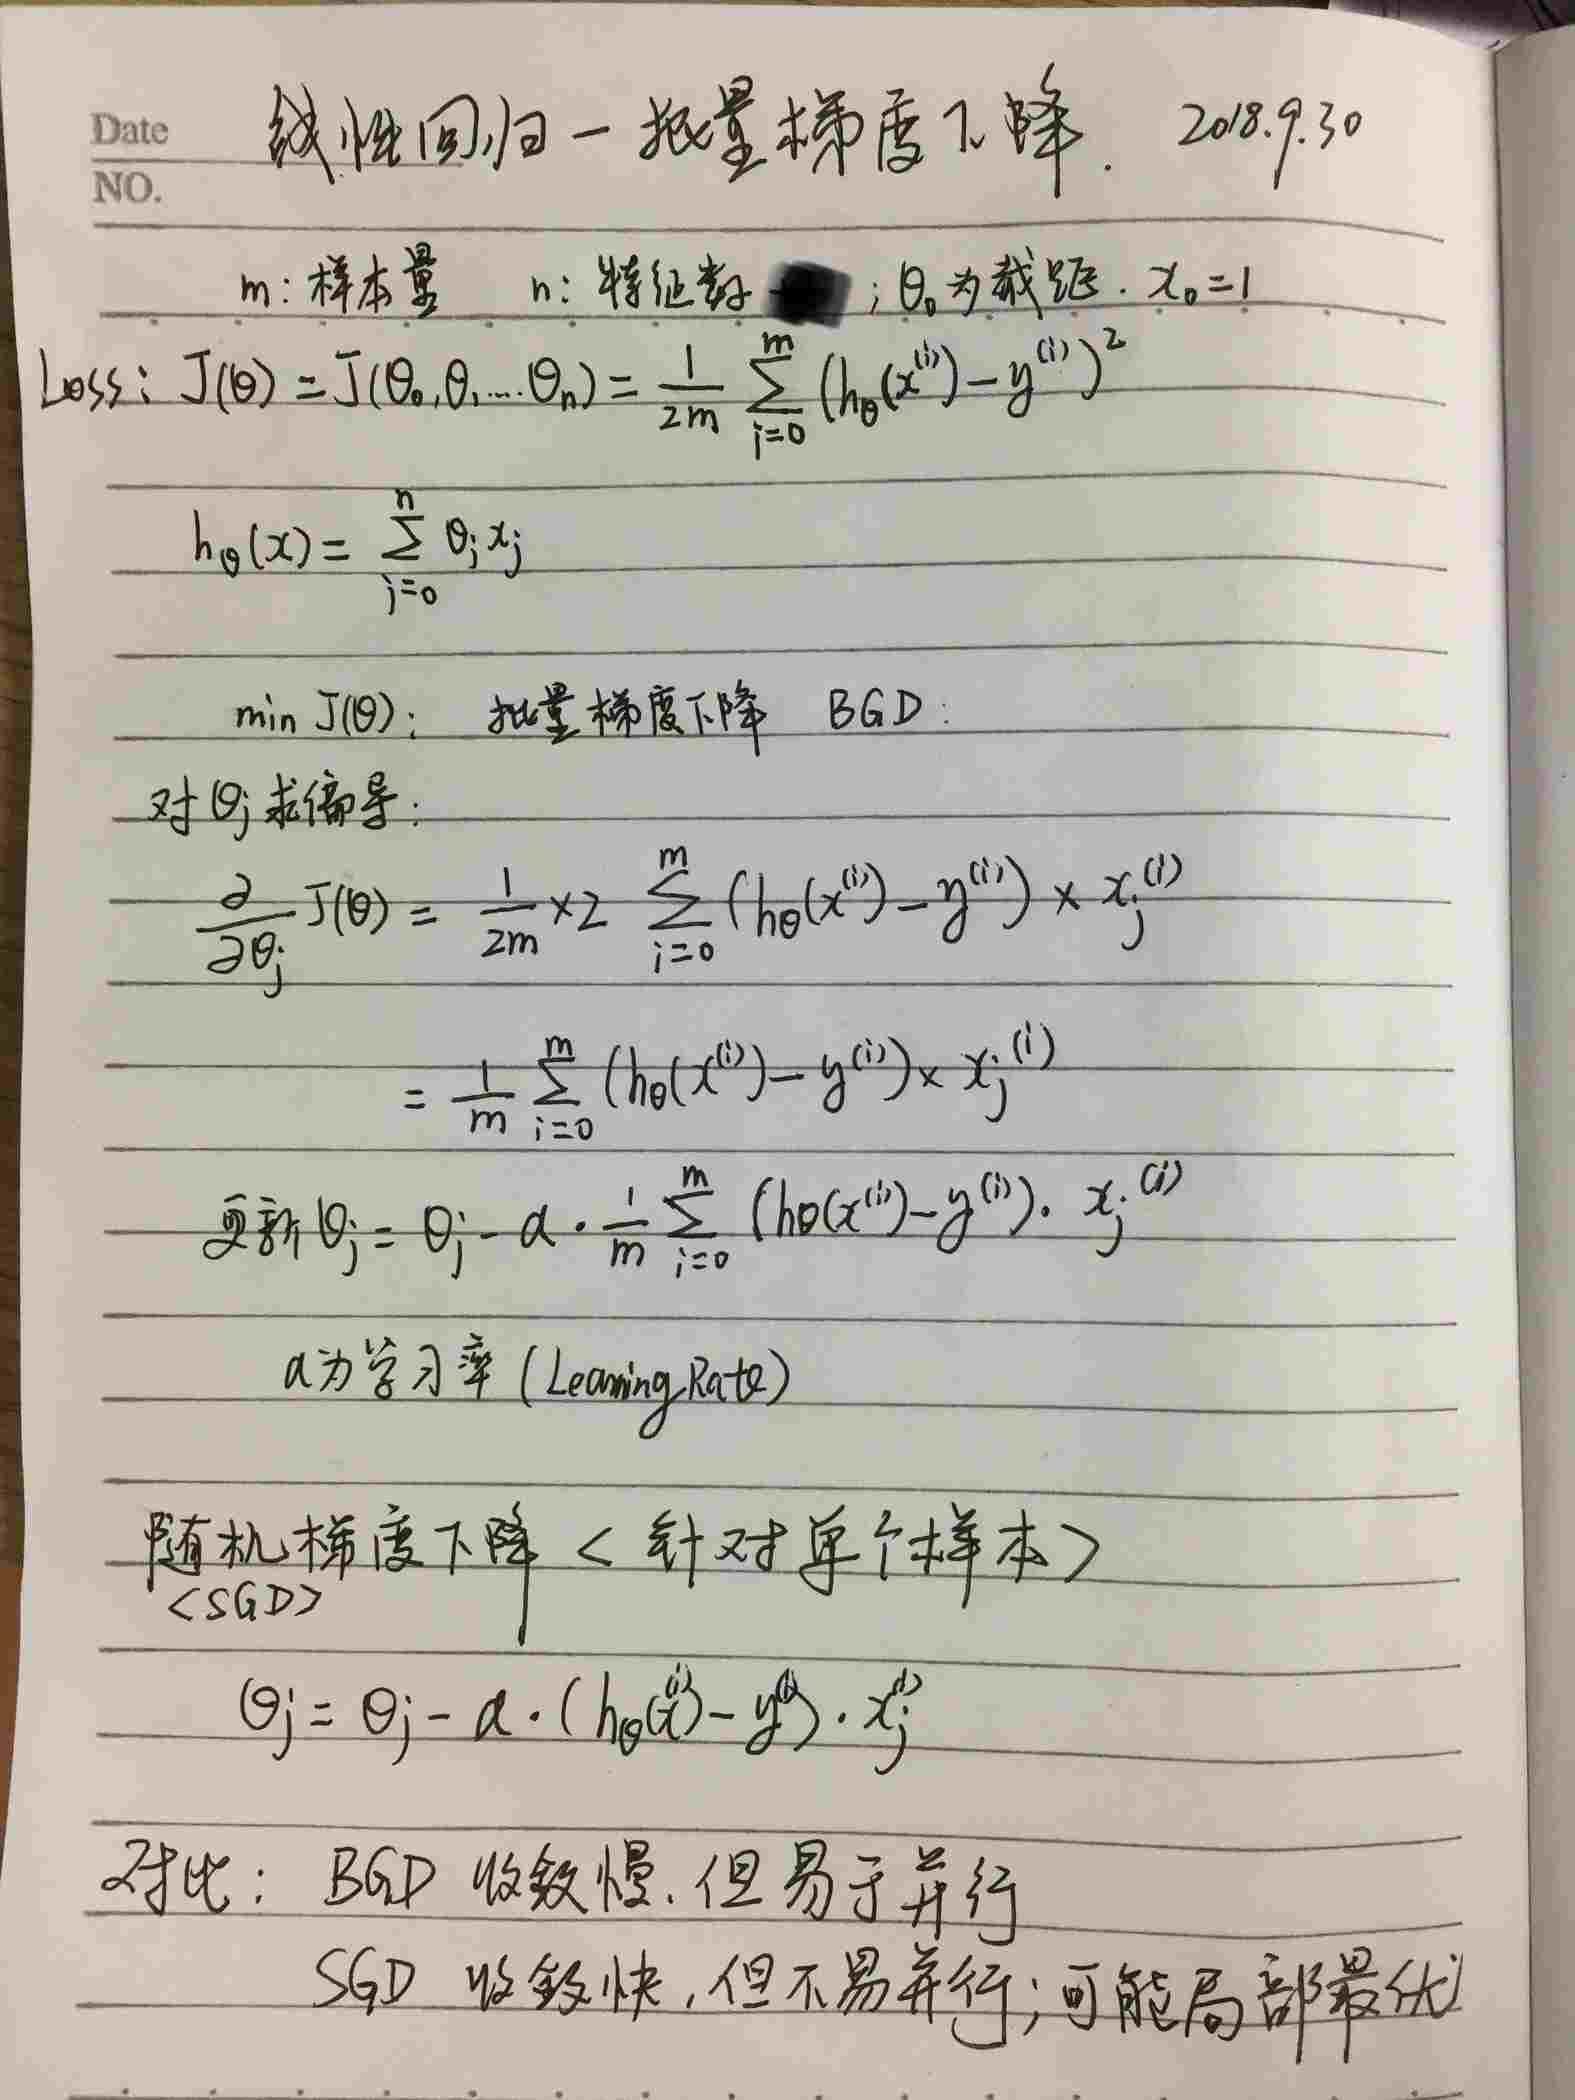 Date
NO.
线性回归-批量梯度下降. 2018.9.30
m: 样本量 n: 特征数 ; θ₀为截距. x₀=1
Loss: J(θ) = J(θ₀,θ₁…θₙ) = 1/2m ∑_{i=0}^{m} (h_θ(x^(i)) - y^(i))²
h_θ(x) = ∑_{j=0}^{n} θ_j x_j
min J(θ): 批量梯度下降 BGD:
对θ_j求偏导:
∂/∂θ_j J(θ) = 1/2m ×2 ∑_{i=0}^{m} (h_θ(x^(i)) - y^(i)) × x_j^(i)
= 1/m ∑_{i=0}^{m} (h_θ(x^(i)) - y^(i)) × x_j^(i)
更新 θ_j = θ_j - α · 1/m ∑_{i=0}^{m} (h_θ(x^(i)) - y^(i)) · x_j^(i)
α为学习率 (Learning Rate)
随机梯度下降 <针对单个样本>
<SGD>
θ_j = θ_j - α · (h_θ(x^(i)) - y^(i)) · x_j^(i)
对比: BGD 收敛慢, 但易于并行
SGD 收敛快, 但不易并行; 可能局部最优